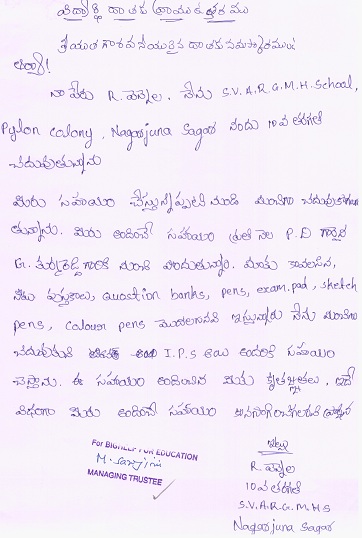 విద్యార్థి దాతకు వ్రాయు ఉత్తరము
శ్రీయుత గౌరవనీయులైన దాతకు నమస్కారములు
ఆర్యా!
నా పేరు R. వెన్నెల. నేను S.V.A.R.G.M.H. School,
Pylon colony, Nagarjuna Sagar నందు 10వ తరగతి
చదువుతున్నాను
మీరు సహాయం చేస్తున్నప్పటి నుండి మంచిగా చదువుకో
తున్నాను. మీరు అందించే సహాయం ప్రతి నెల P.D గారైన
G. గారి నుంచి పొందుతున్నాను. మాకు కావలసిన,
నోటు పుస్తకాలు, Question banks, pens, exam.pad, sketch
pens, colour pens మొదలగునవి ఇస్తున్నారు నేను మంచిగా
చదువుకుని I.P.S అయి అందరికి సహాయం
చేస్తాను. ఈ సహాయం అందించిన మీకు కృతజ్ఞతలు. ఇదే
విధంగా మీరు అందించే సహాయం
For BIGHELP FOR EDUCATION
M. Sarojini
MANAGING TRUSTEE
ఇట్లు
R. వెన్నెల
10వ తరగతి
S.V.A.R.G.M.H.S
Nagarjuna Sagar